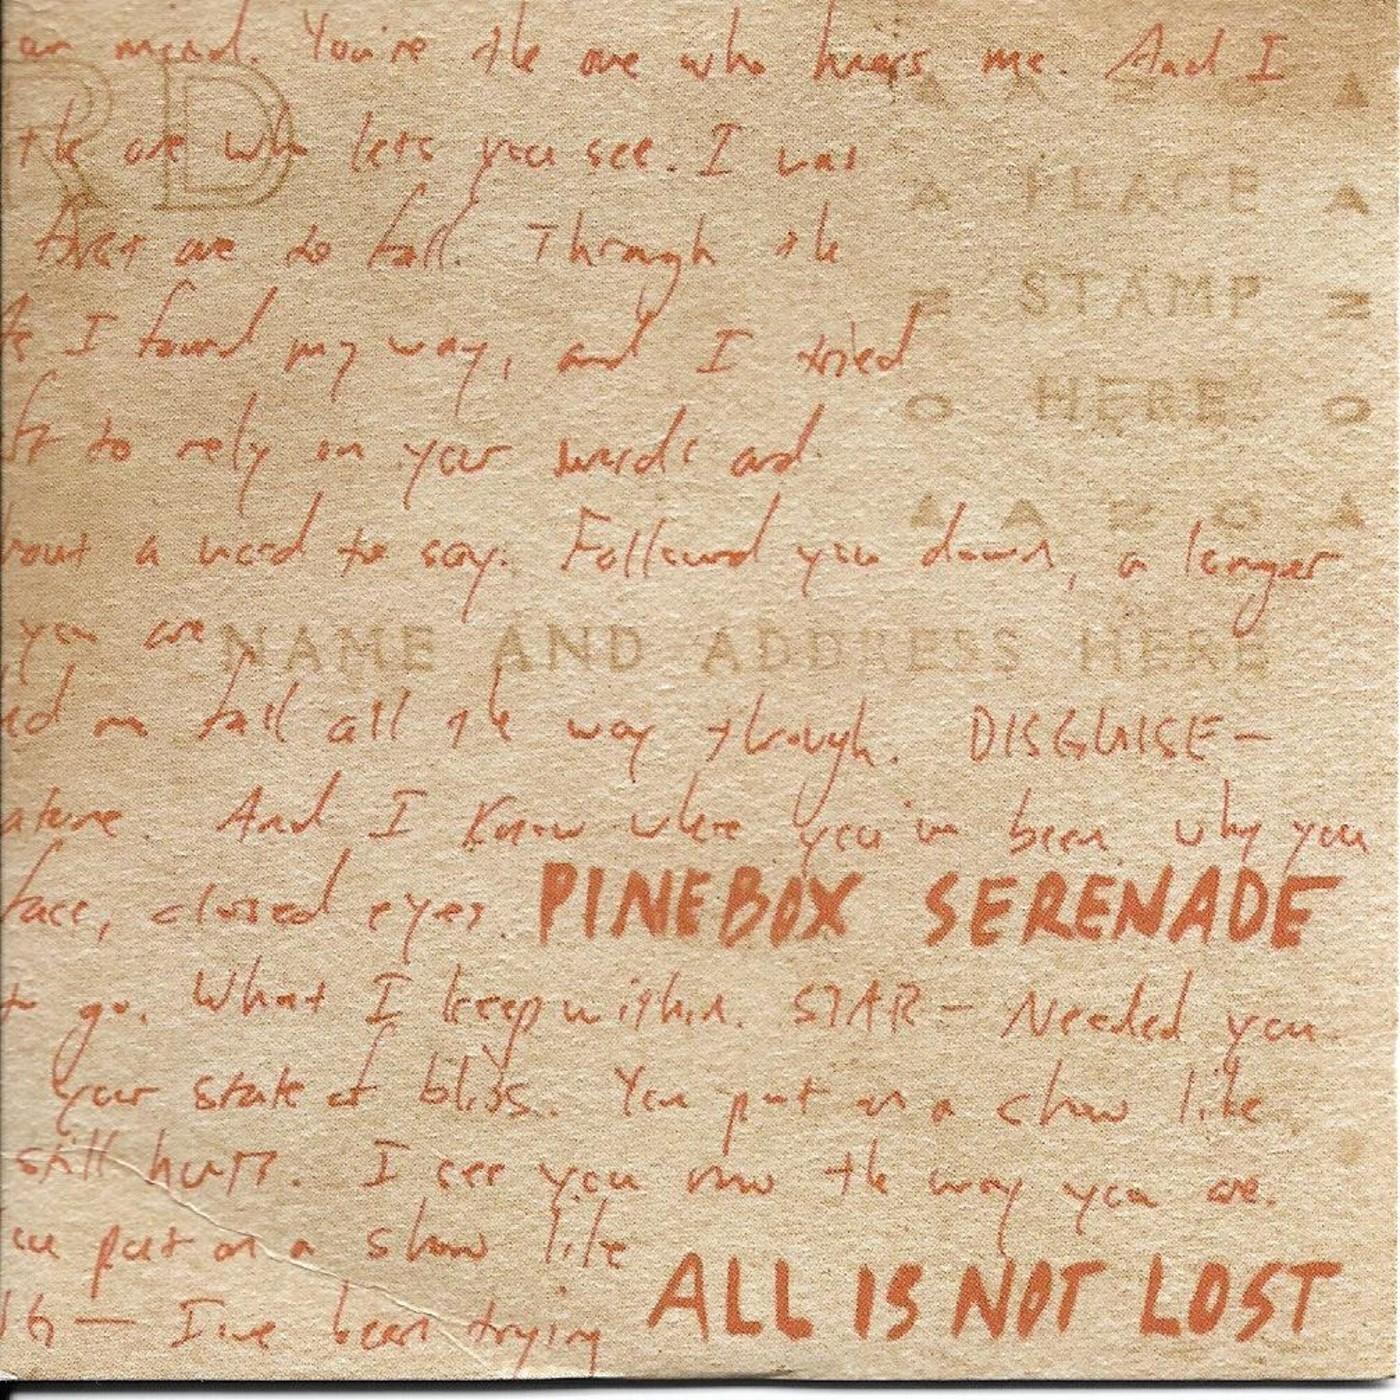 an mind. You're the one who hears me. And I
RD
the one who lets you see. I was
PLACE
first one to fall. Through the
STAMP
As I found my way, and I tried
HERE
to rely on your words and
without a need to say. Followed you down, a longer
you are
NAME AND ADDRESS HERE
me fall all the way through. DISGUISE-
And I know where you've been why you
face, closed eyes PINEBOX SERENADE
to go. What I keep within. STAR- Needed you.
your state of bliss. You put on a show like
still hurts. I see you now the way you are.
you put on a show like
ALL IS NOT LOST
I've been trying